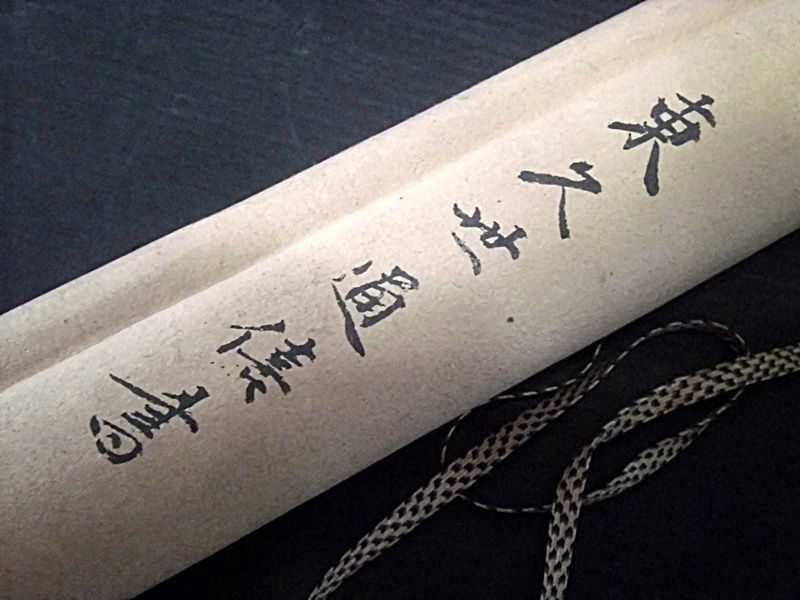 東久世通禧書